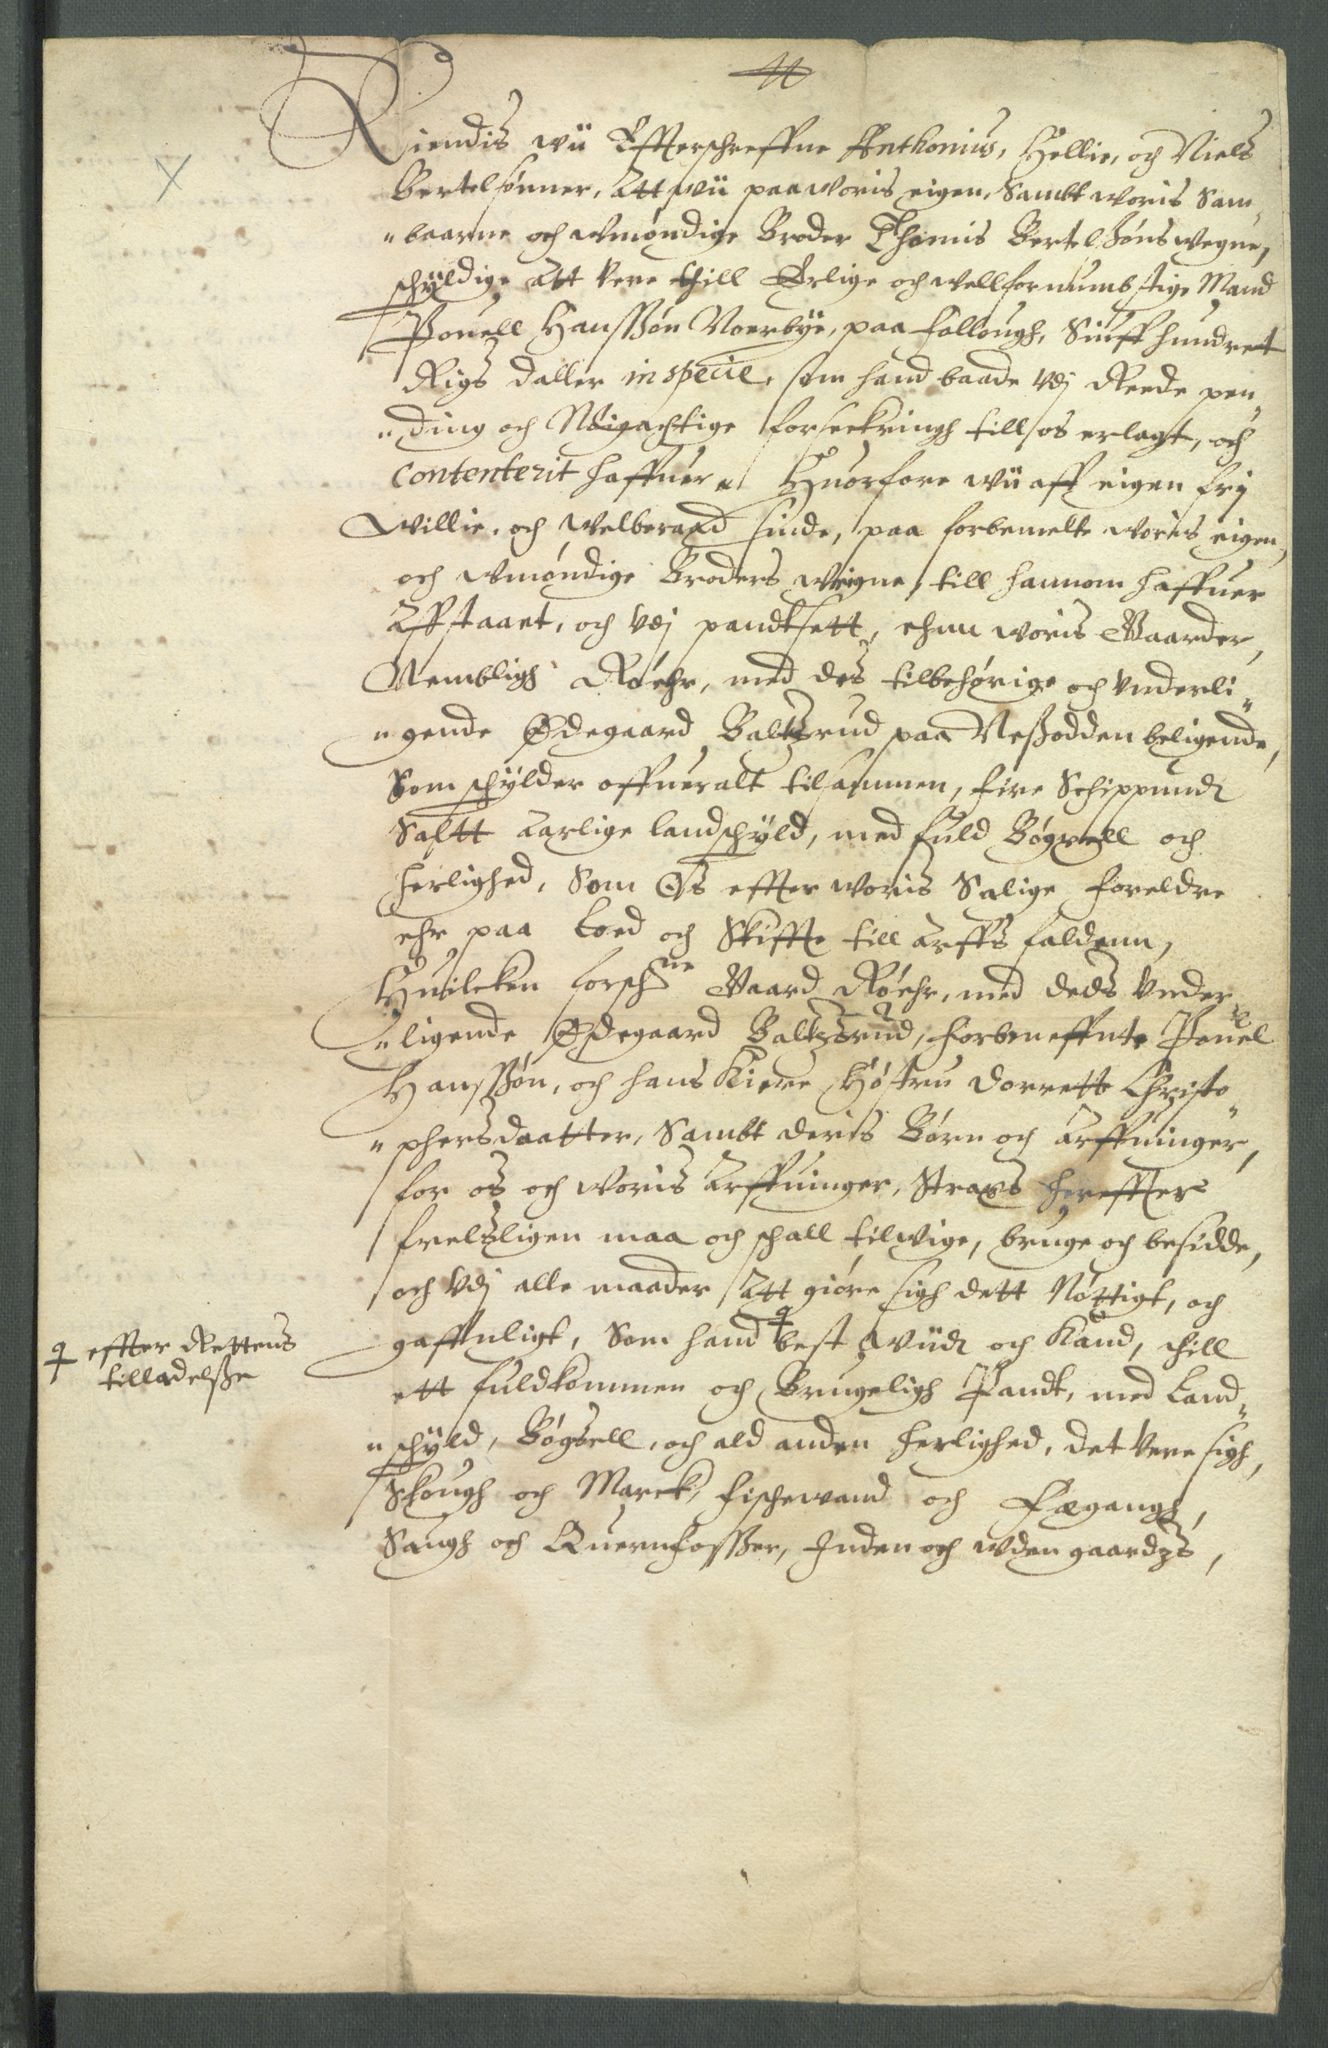 Kiendis wii Effterschreffne Anthonius, Hellie, och Niels
Bertelsønner, Att wii paa woris eigen, Sambt woris Sam„
„baarne och wmøndige Broder Thomis Bertelsøns wegne,
schÿldige Att Vere thill Erlige och wellfornumbstige Mand
Pouell Hanssøn Noerbÿe, paa Follough, Siuff hundret
Rigs daller in specie, som hand baade vdj Reede pen„
„ding och Nöigachtige forseckringh till os erlagt, och
contenterit haffuer, Huorfore wii aff eigen frij
willie, och welberaad sinde, paa forbemelte woris eigen,
och wmøndige Broders wegne, till hannom haffuer
Affstaaet, och vdj pandtsett, ehnn woris Gaarder,
Nembligh Röehr, med des tilbehørige och vnderli„
„gende Ødegaard Baltzrud paa Nesodden beligende,
Som schÿlder offueralt tilsammen, fire Schippund
Saltt aarlige landschÿld, med fuld Bøgxell och
herlighed, Som Os effter woris Salige foreldre
ehr paa Lod och Skiffte till arffs faldenn,
Huilcken forschne Gaard Röehr, med deds vnder„
„ligende Ødegaard Baltzsrud, forbeneffnte Pouel
Hanssøn, och hans Kiere Høstru Dorrette Christo„
„phersdaatter, Sambt deris Børn och arffuinger,
for os och woris arffuinger, Strax hereffter
frelsligen maa och schall tilwige, bruge och besidde,
och vdj alle maader Att giöre sigh dett Nøttigt, och
gaffnligt, Som hand ♀ best wiid och Kand, thill
ett fuldkommen och Brugeligh Pandt, med Land„
„schÿld, Bøgsell, och ald anden herlighed, det vere sigh,
Skough och Marck, fischewand och Fægangh,
Saugh och Quernfosser, Inden och wden gaardzs,
♀ effter Rettens
tilladelsse